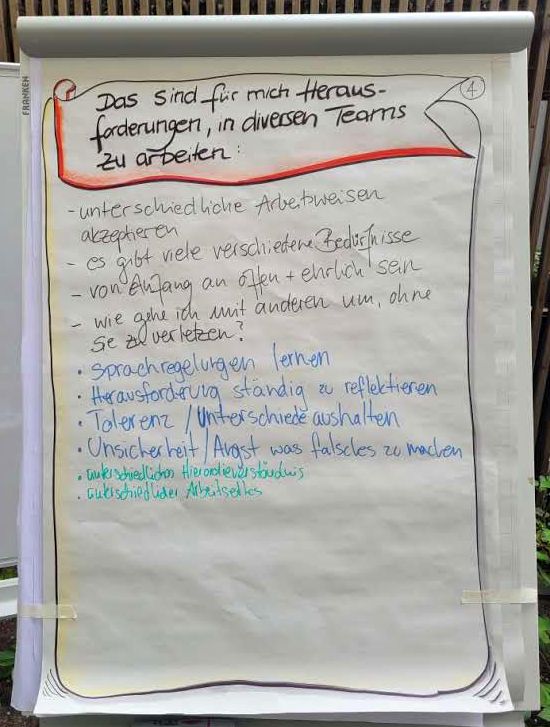 FRANKEN
4
Das sind für mich Heraus-
forderungen, in diversen Teams
zu arbeiten:
- unterschiedliche Arbeitsweisen
akzeptieren
- es gibt viele verschiedene Bedürfnisse
- von Anfang an offen + ehrlich sein
- wie gehe ich mit anderen um, ohne
sie zu verletzen?
• Sprachregelungen lernen
• Herausforderung ständig zu reflektieren
• Tolerenz / Unterschiede aushalten
• Unsicherheit / Angst was falsches zu machen
• unterschiedliches Hierarchieverständnis
• unterschiedliches Arbeitsethos